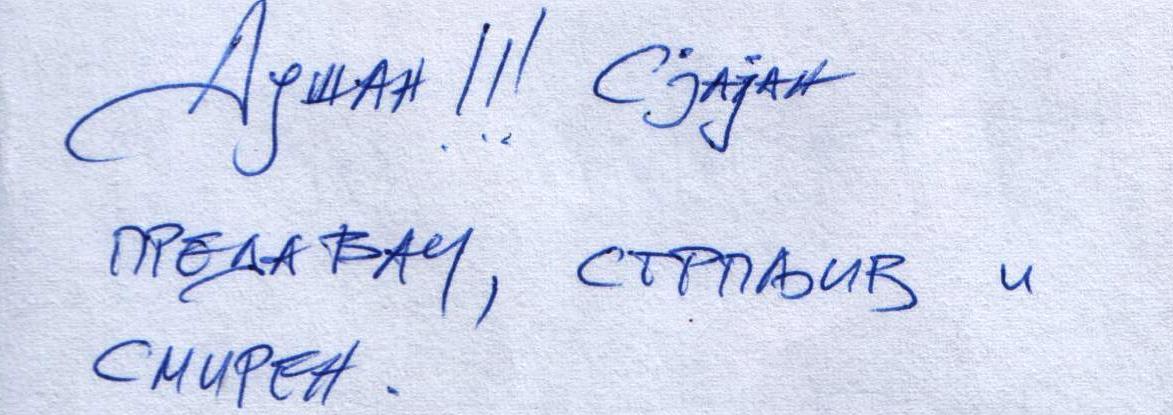 Душан!!! Сјајан
предавач, стрпљив и
смирен.